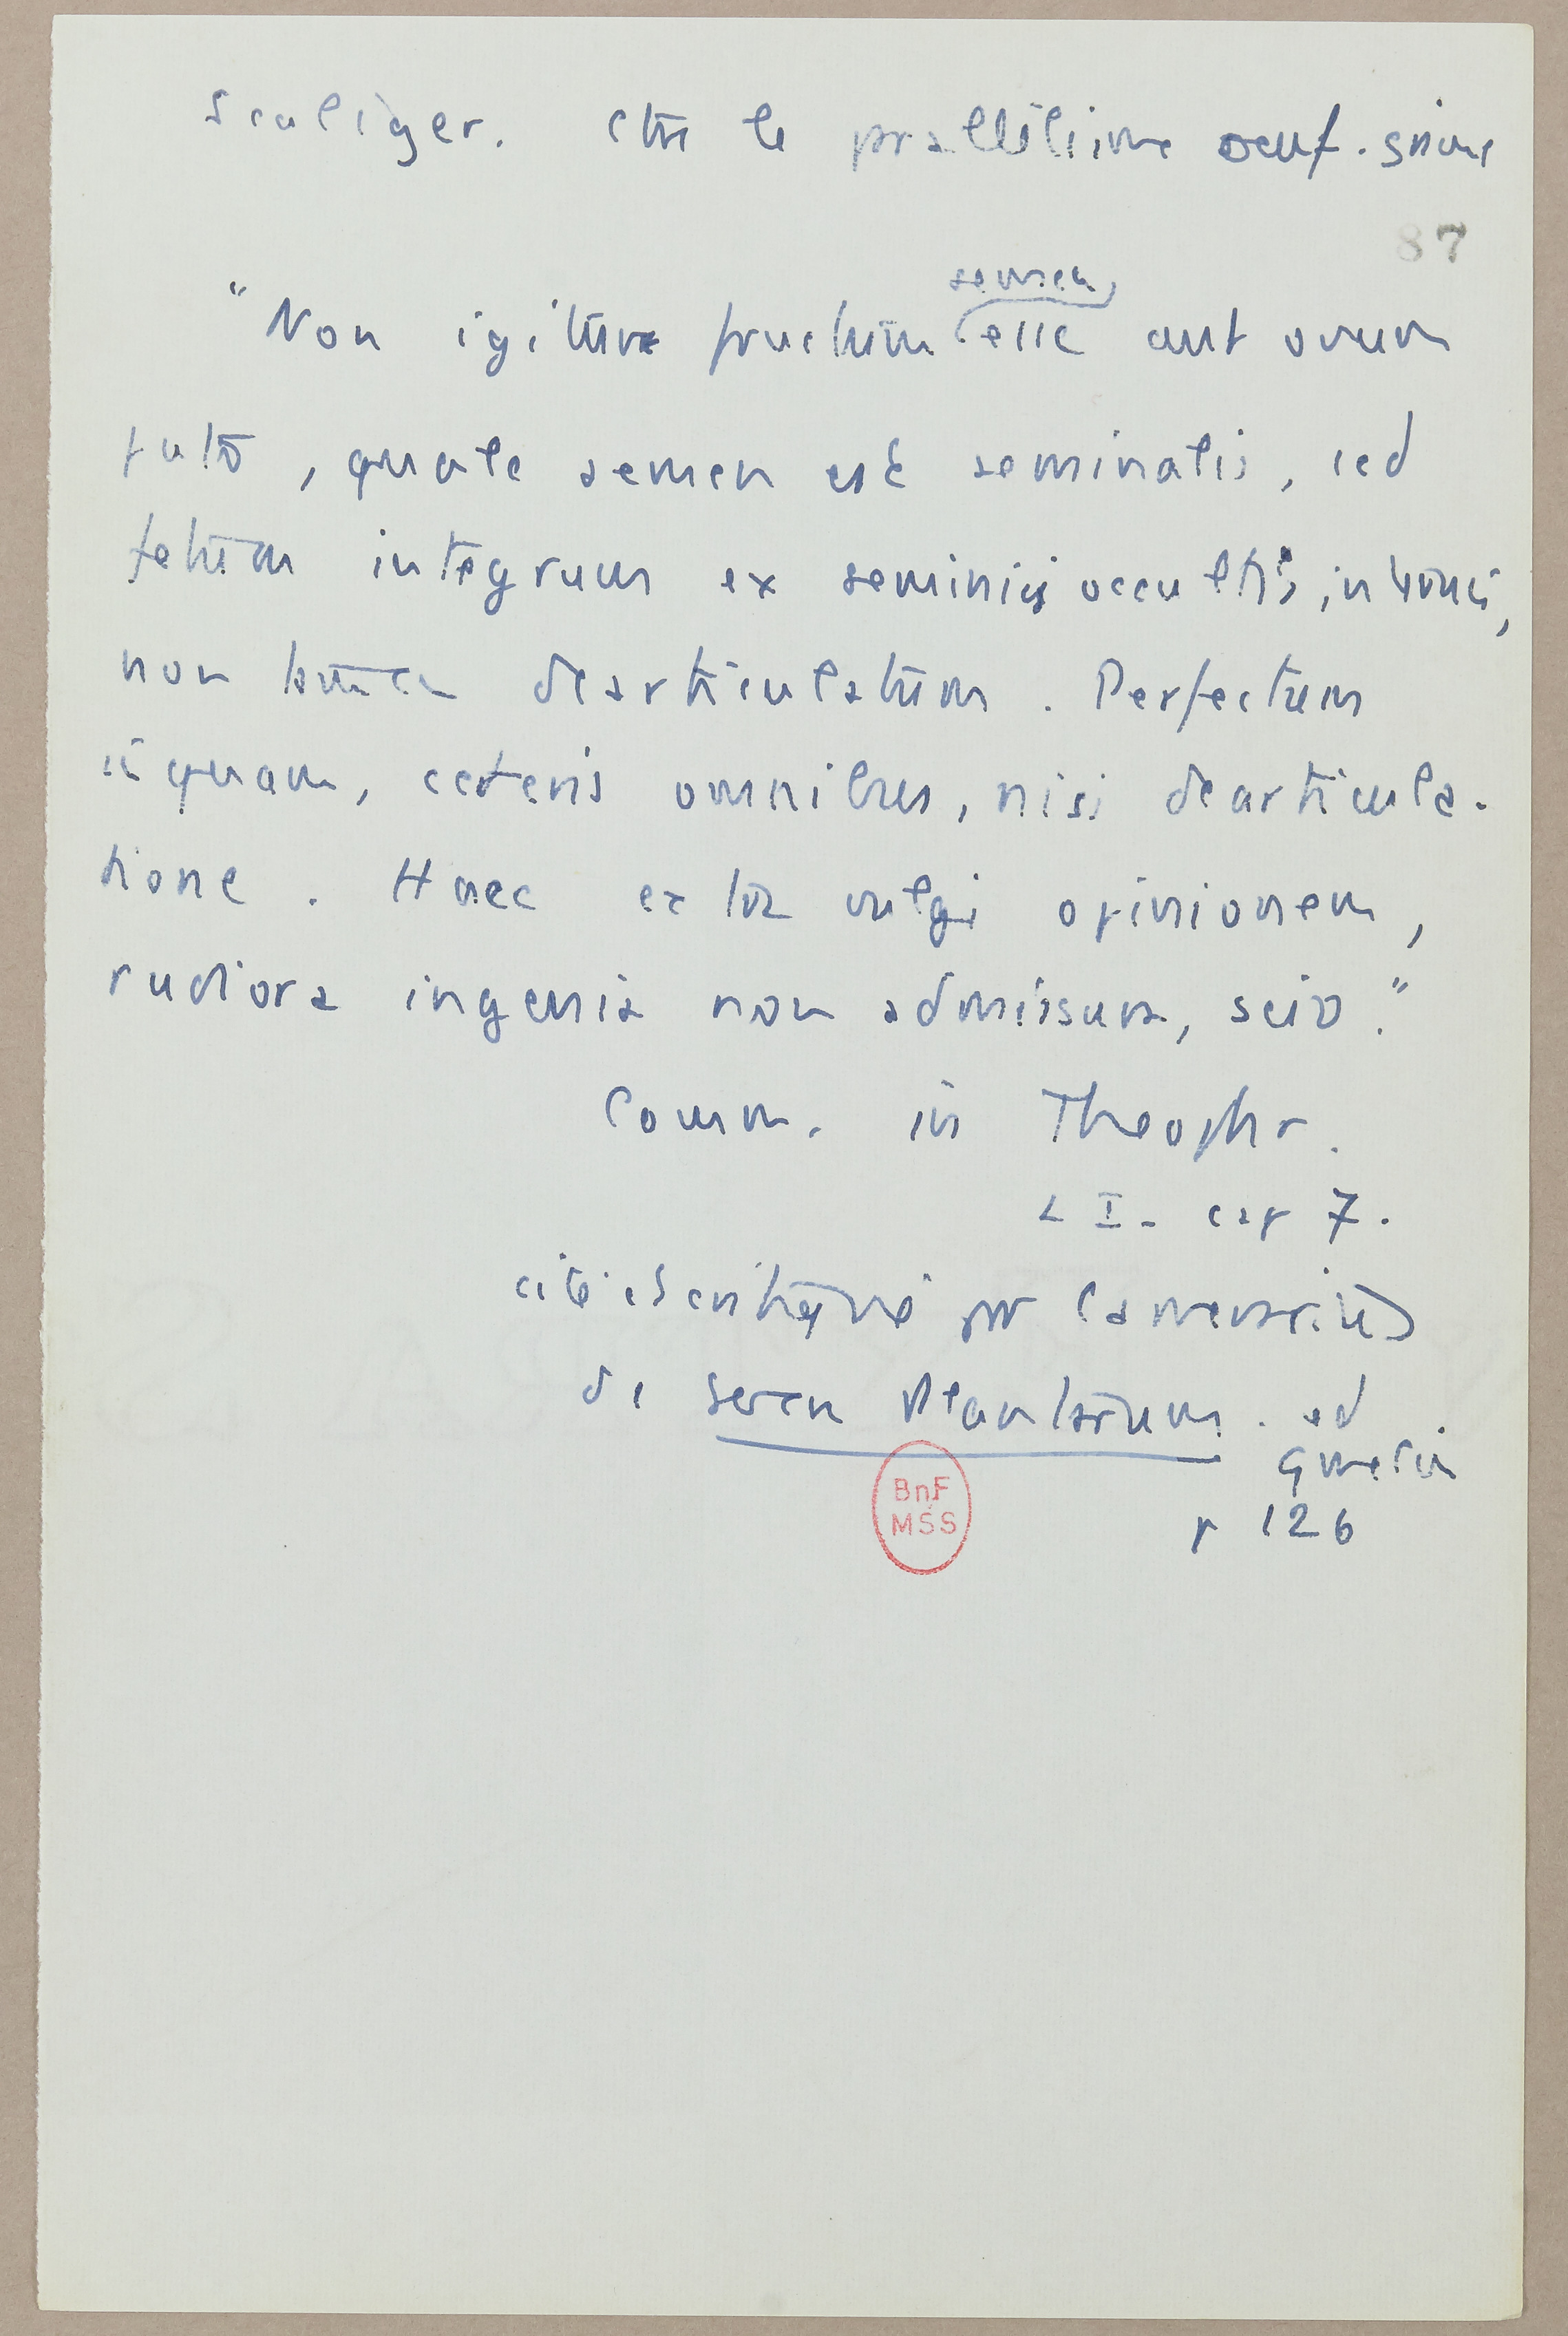 Scaliger. Ctre le parallélisme oeuf. graine
87
semen,
"Non igitur fructum esse aut ovum
puto, quale semen est seminalis, sed
fetum integrum ex seminiis occultis,
non tamen dearticulatum. Perfectum
inquam, ceteris omnibus, nisi dearticula-
tione. Haec extra vulgi opinionem,
rudiora ingenia non admissura, scio."
Comm. in Theophr.
L I. cap 7.
cité par Camerarius
de sexu Plantarum. ed
Gmelin
p 126
BnF
MSS